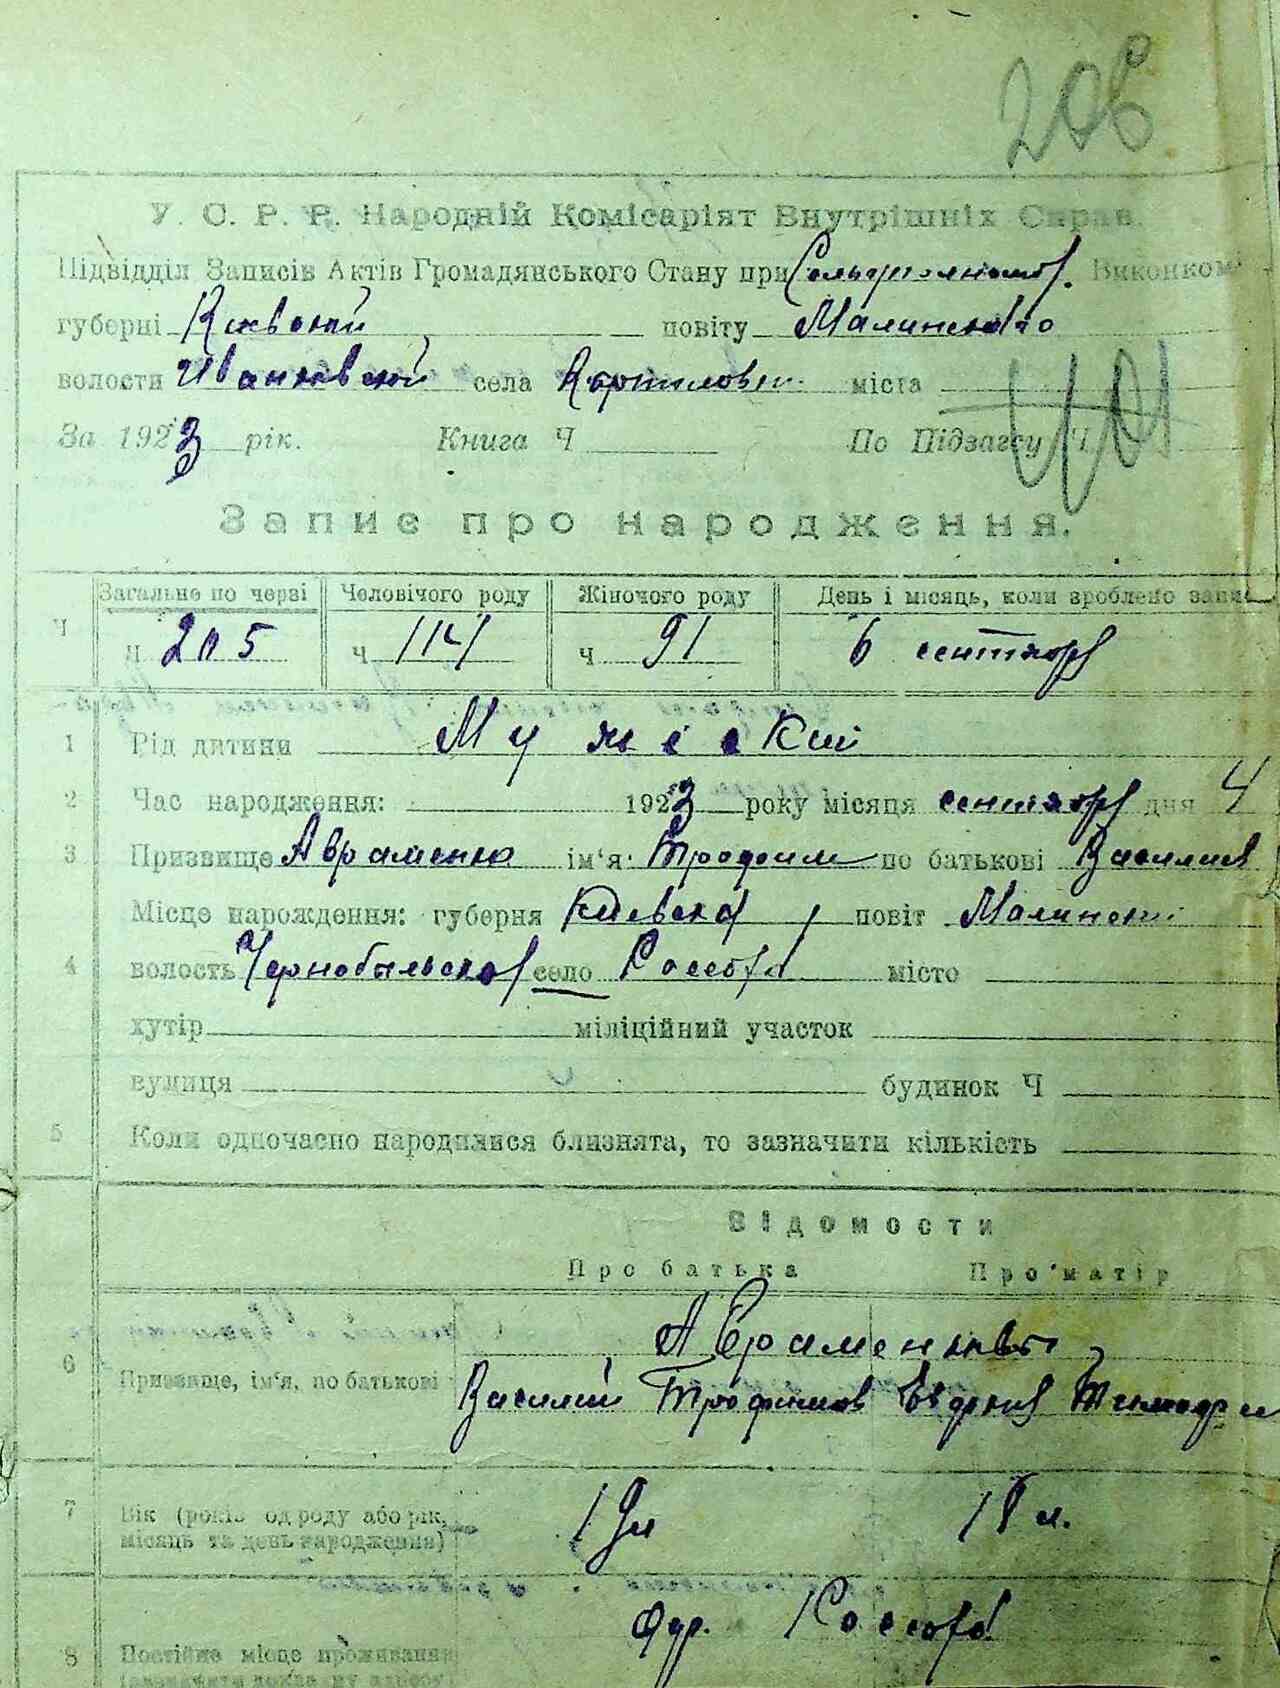 206
У. С. Р. Р. Народній Комісаріят Внутрішніх Справ.
Підвідділ Записів Актів Громадянського Стану при Виконком
губерні Киевской повіту Малинского
волости Иванковской села міста
За 1923 рік. Книга Ч По Підзагсу Ч
Запис про народження.
Загальне по черзі Человічого роду Жіночого роду День і місяць, коли зроблено запис
Ч Ч 205 Ч 114 Ч 91 6 сентября
1 Рід дитини Мужіский
2 Час народження: 1923 року місяця сентября дня 4
3 Призвище Авраменко ім'я: Трофим по батькові Василиев
Місце нарождення: губерня Киевская повіт Малинский
4 волость Чернобыльская село місто
хутір міліційний участок
вулиця будинок Ч
5 Коли одночасно народилися близнята, то зазначити кількість
Відомости
Про батька Про матір
Авраменковы
6 Призвище, ім'я, по батькові Василий Трофимов Евдокия
7 Вік (років од роду або рік, 19 л 18 л.
місяць та день народження)
8 Постійне місце проживання